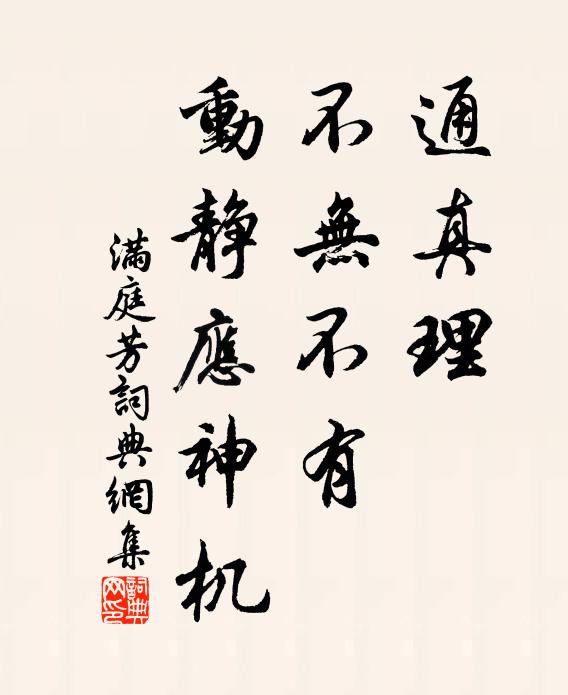 通真理
不無不有
動靜應神机
滿庭芳詞典網集
詞典
网印